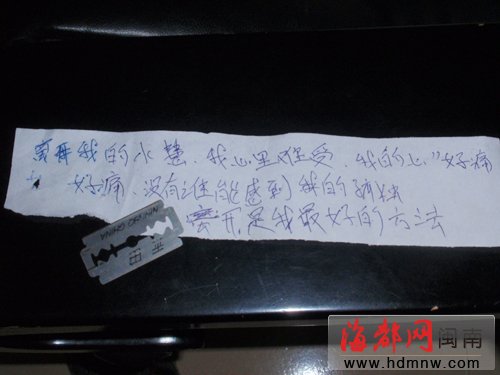 离开我的水慧、我心里难受 我的心"好痛
好痛、没有谁能感到我的孤独
离开,是我最好的方法
MADE IN CHINA
海都网 闽南
www.hdmnw.com